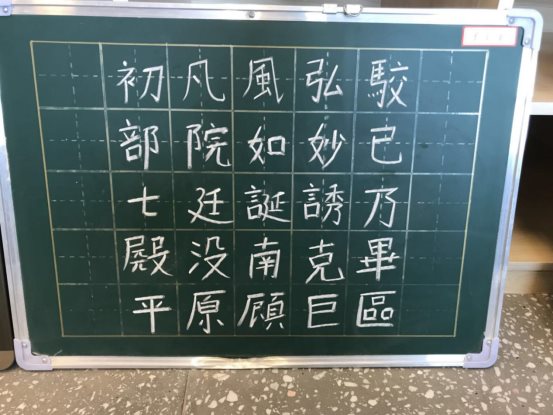 初凡風弘駮
部院如妙已
七廷誕誘乃
殿没南克畢
平原顾巨區